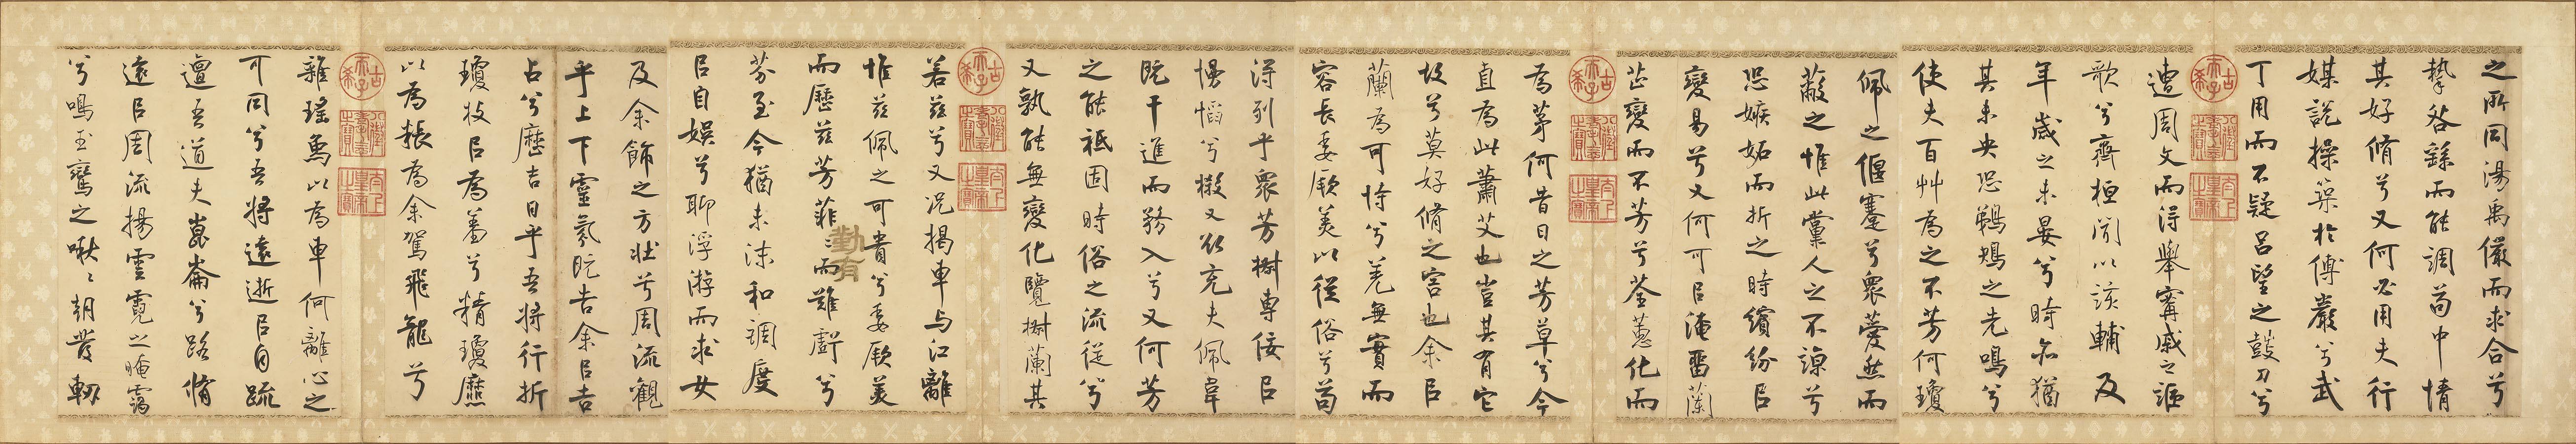 之所同湯禹儼而求合兮
摯咎繇而能調苟中情
其好脩兮又何必用夫行
媒說操築於傅巖兮武
丁用而不疑呂望之鼓刀兮
古希天子
八徵耄念之寶
太上皇帝之寶
遭周文而得舉甯戚之謳
歌兮齊桓聞以該輔及
年歲之未晏兮時亦猶
其未央恐鵜鴂之先鳴兮
使夫百艸為之不芳何瓊
佩之偃蹇兮衆薆然而
蔽之惟此黨人之不諒兮
恐嫉妬而折之時繽紛㠯
變易兮又何可㠯淹留蘭
芷變而不芳兮荃蕙化而
古希天子
八徵耄念之寶
太上皇帝之寶
為茅何昔日之芳草兮今
直為此蕭艾也豈其有它
故兮莫好脩之害也余㠯
蘭為可恃兮羌無實而
容長委厥美以從俗兮苟
得列乎衆芳椒專佞㠯
慢慆兮樧又欲充夫佩幃
既干進而務入兮又何芳
之能祗固時俗之流從兮
又孰能無變化覽椒蘭其
古希天子
八徵耄念之寶
太上皇帝之寶
若茲兮又況揭車与江離
惟茲佩之可貴兮委厥美
而歷茲芳菲〻而難虧兮
勤有
芬至今猶未沬和調度
㠯自娛兮聊浮游而求女
及余飾之方壯兮周流觀
乎上下靈氛既告余㠯吉
占兮歷吉日乎吾將行折
瓊枝㠯為羞兮精瓊爢
以為粻為余駕飛龍兮
古希天子
八徵耄念之寶
太上皇帝之寶
雜瑤象以為車何離心之
可同兮吾將遠逝㠯自疏
邅吾道夫崑崙兮路脩
遠㠯周流揚雲霓之晻靄
兮鳴玉鸞之啾〻朝發軔